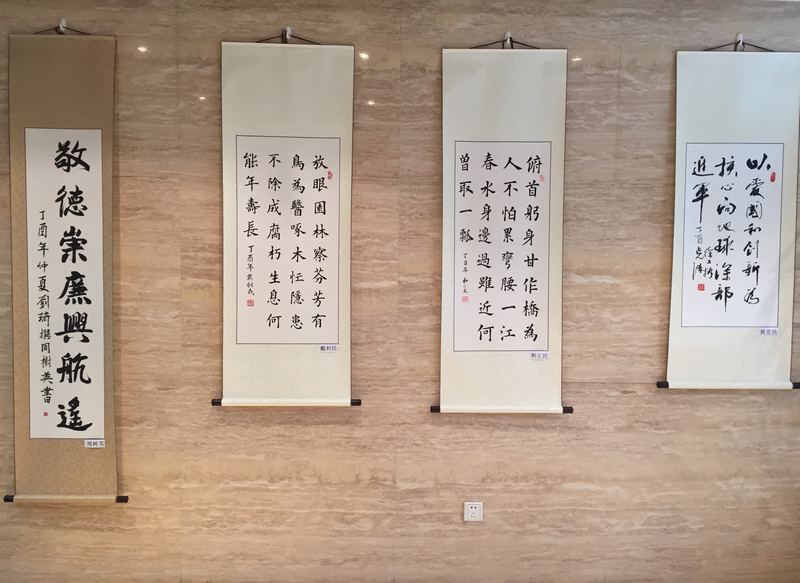 敬德崇廉興航遙
丁酉年仲夏劉琦撰周樹英書
周树英
放眼園林察芬芳有
鳥為醫啄木怔隱患
不除成腐朽生息何
能年壽長 丁酉年戴利民
戴利民
俯首躬身甘作橋為
人不怕累彎腰一江
春水身邊過雖近何
曾取一瓢 丁酉年 和正民
和正民
以愛國和創新為
核心向地球深部
進軍 丁酉